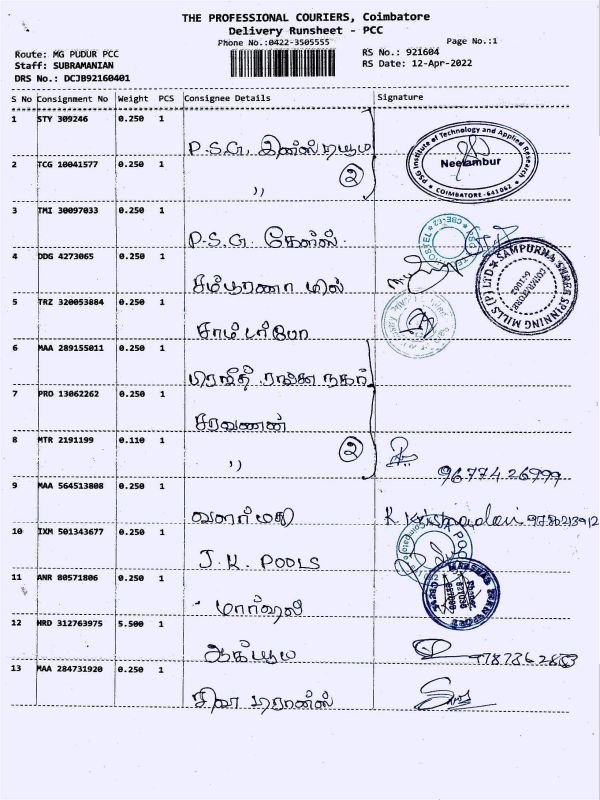 THE PROFESSIONAL COURIERS, Coimbatore
Delivery Runsheet - PCC
Phone No.:0422-3505555
Page No.:1
Route: MG PUDUR PCC
RS No.: 921604
Staff: SUBRAMANIAN
RS Date: 12-Apr-2022
DRS No.: DCJB92160401
S No Consignment No Weight PCS Consignee Details Signature
1 STY 309246 0.250 1
P.S.G.
PSG Institute of Technology and Applied Research
Neelambur
COIMBATORE-641062
2 TCG 10041577 0.250 1
,, 2
3 TMI 30097033 0.250 1
P.S.G. கேர்ல்ஸ்
4 DDG 4273065 0.250 1
சம்பூரணா மில்
SAMPURNA SHREE SPINNING MILLS (P) LTD
COIMBATORE 641062
5 TRZ 320053884 0.250 1
6 MAA 289155011 0.250 1
நகர்
7 PRO 13062262 0.250 1
சரவணன்
8 MTR 2191199 0.110 1
,, 2
96774 26999
9 MAA 564513808 0.250 1
வளர்மதி
10 IXM 501343677 0.250 1
J.K. POOLS
11 ANR 80571806 0.250 1
12 HRD 312763975 5.500 1
13 MAA 284731920 0.250 1
சிவா டிரான்ஸ்